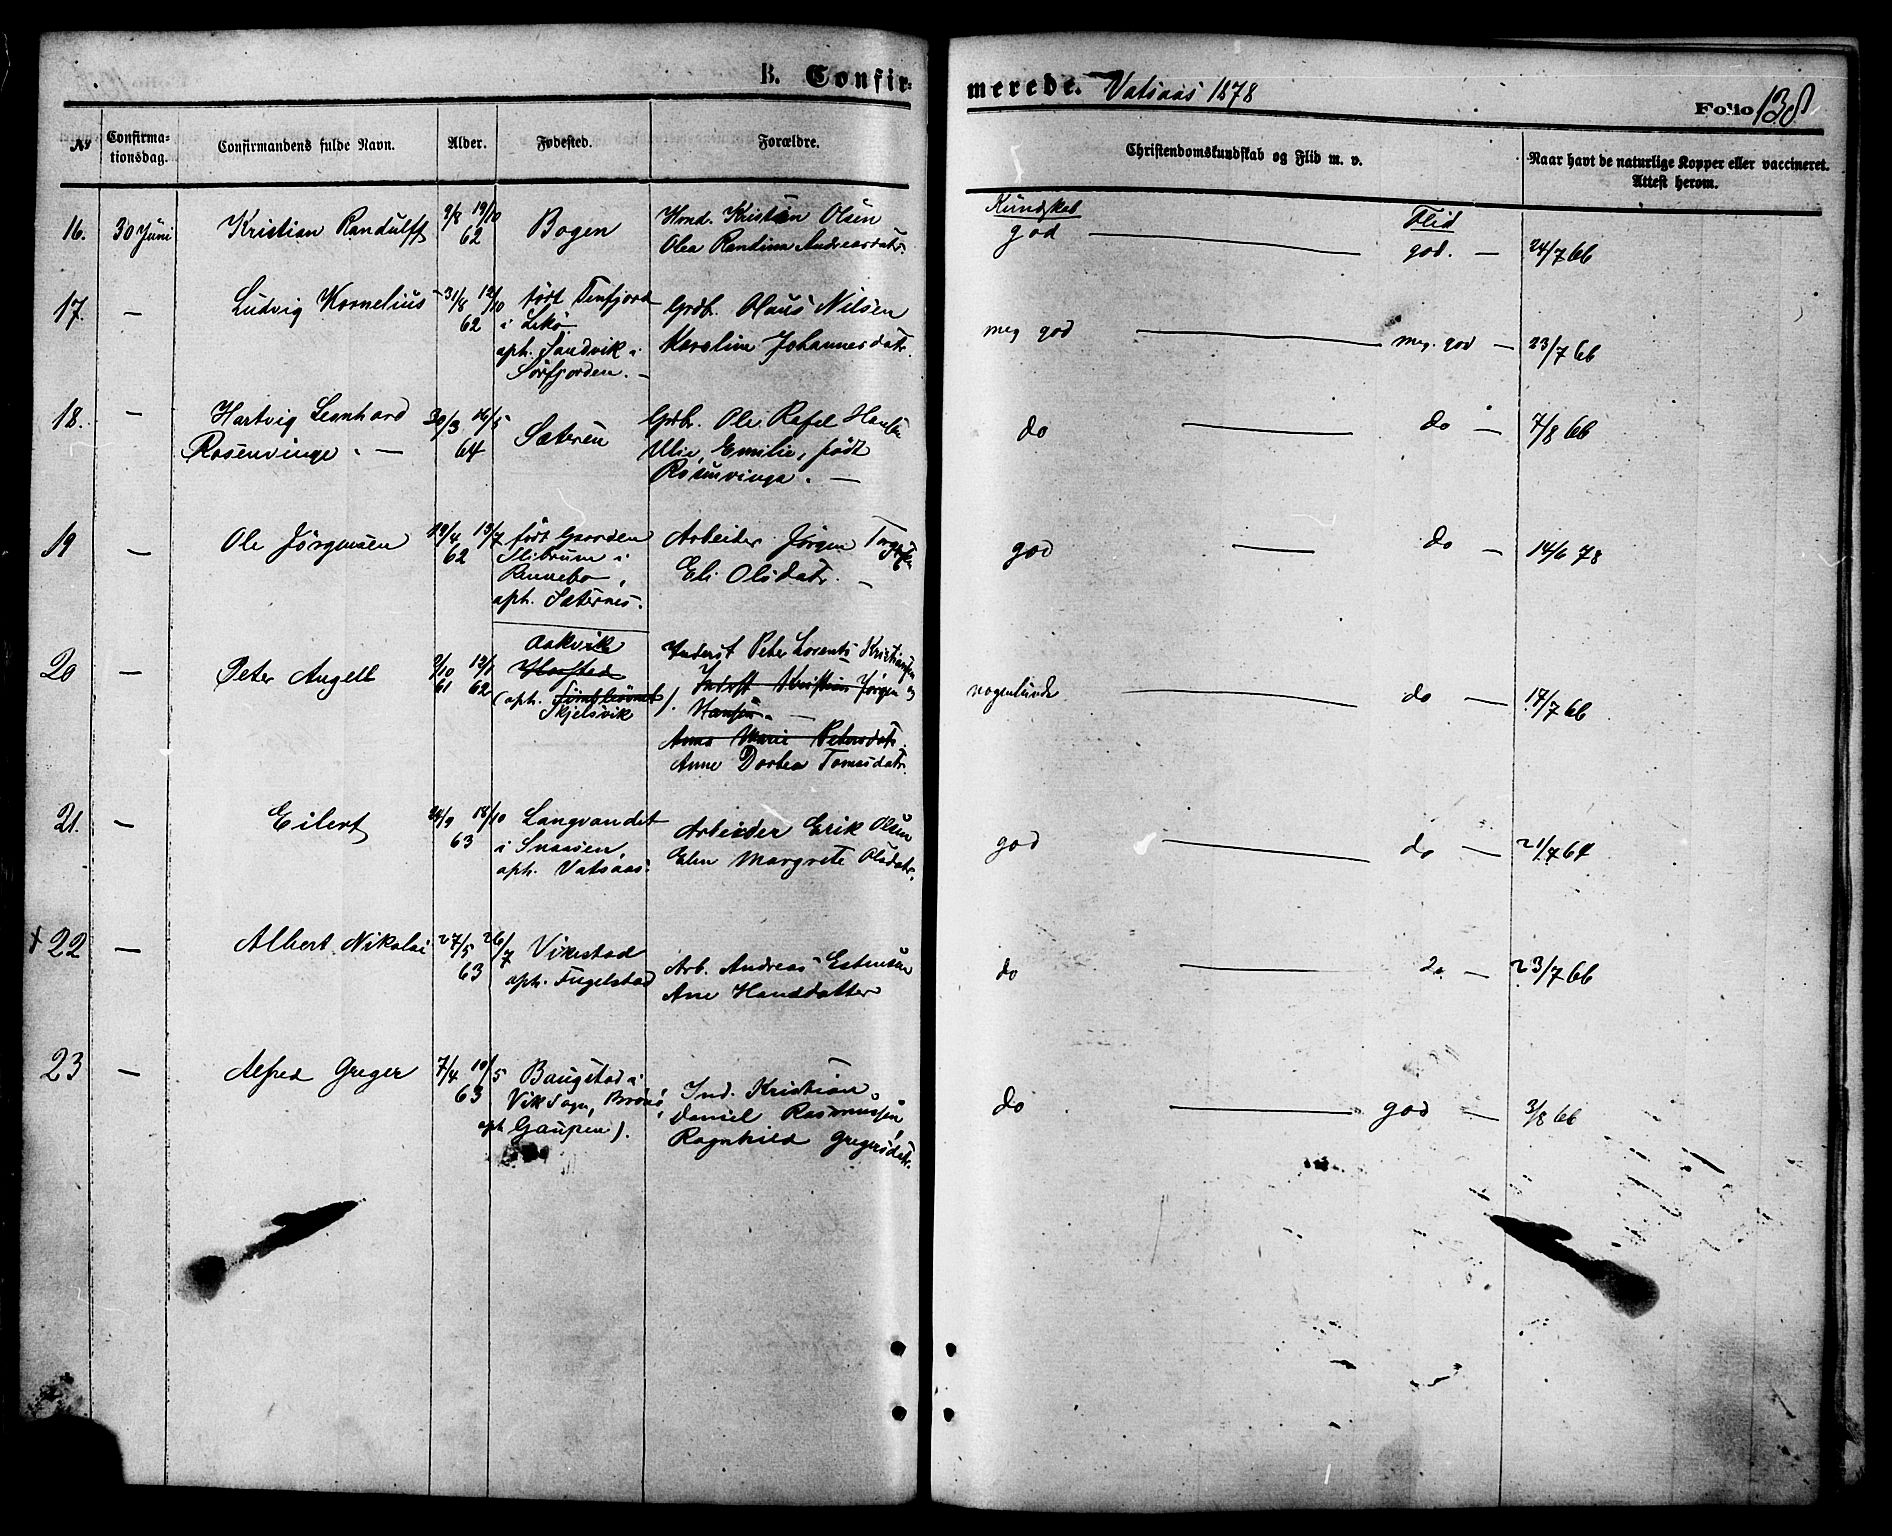 B. Confir-
merede. Vatsaas 1878
Folio 138
No Confirma-tionsdag. Confirmandens fulde Navn. Alder. Fødested. Forældre. Christendomskundskab og Flid m. v. Naar havt de naturlige Kopper eller vaccineret. Attest herom.
Kundskab Flid
16. 30 Juni Kristian Randulff 9/8 19/10 62 Bogen
Hmd. Kristian Olsen
Olea Randina Andreasdatr.
god — god. — 24/7 66
17. — Ludvig Kornelius 31/8 12/10 62
født Tenfjord
i Lekø
oph. Sandvik i
Sørfjorden. —
Grdb. Olaus Nilsen
Karolina Johannesdatr.
meg god — meg. god — 23/7 66
18. — Hartvig Leonhard
Rosenvinge. — 30/3 16/5 64 Sæteren
Grdbr. Ole Rafel Hansen
Emilie, født
Rosenvinge. —
do — do — 7/8 66
19 — Ole Jørgensen 19/4 13/7 62
født Gaarden
i
Rennebo,
oph. Sæternes.
Arbeider Jørgen
Eli Olsdatr. —
god — do — 14/6 78
20 — Peter Angell 2/10 12/1 61 62
Aakvik
(oph.
Skjelsvik
Inderst Peter Lorents Kristiansen og
). Inderst Kristian Jørgen
Hansen. —
Anna Marie Petersdatr.
Anne Dortea Tomasdatr.
nogenlunde — do — 17/7 66
21. — Eilert 24/9 18/10 63
Langvandet
i Snaasen,
oph. Vatsaas.
Arbeider Erik Olsen
Elen Margrete Olsdatr.
god — do — 21/7 64
+ 22 — Albert Nikolai 27/5 26/7 63
Vikestad
oph. Fugelstad
Arb. Andreas Estensen
Ane Hansdatter
do — do — 23/7 66
23 — Alfred Greger 7/4 10/5 63
Baugstad i
Vik Sogn, Brønø,
oph Gaupen).
Ind. Kristian
Daniel Rasmussen,
Ragnhild Gregersdatr.
do — god — 3/8 66